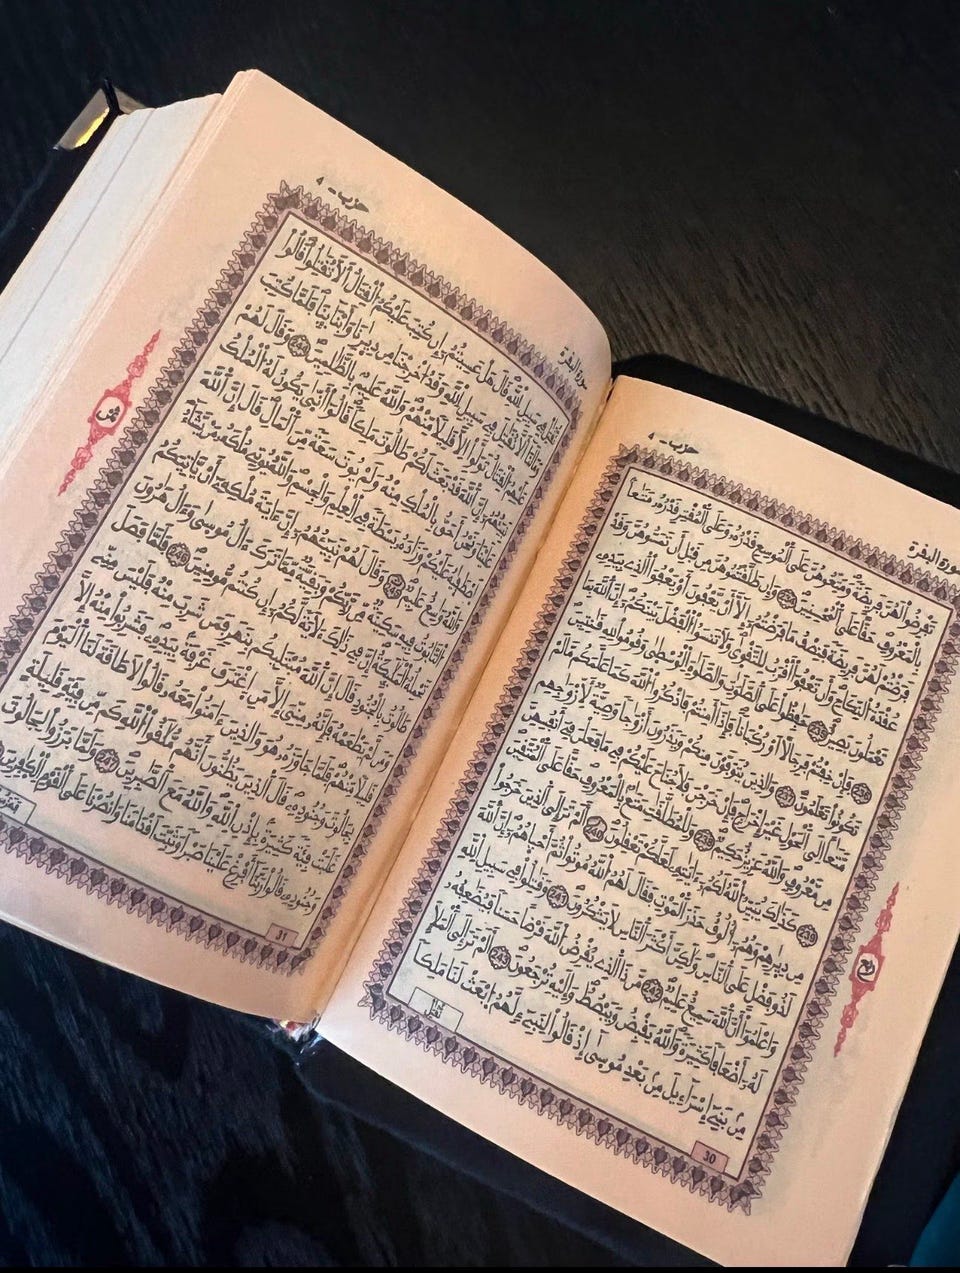 سورة البقرة
حزب - 4
تفرضوا لهن فريضة ومتعوهن على الموسع قدره وعلى المقتر قدره متعا
بالمعروف حقا على المحسنين 234 وإن طلقتموهن من قبل أن تمسوهن وقد
فرضتم لهن فريضة فنصف ما فرضتم إلا أن يعفون أو يعفوا الذي بيده
عقدة النكاح وأن تعفوا أقرب للتقوى ولا تنسوا الفضل بينكم إن الله بما
تعملون بصير 235 حفظوا على الصلوات والصلوة الوسطى وقوموا لله قنتين
236 فإن خفتم فرجالا أو ركبانا فإذا أمنتم فاذكروا الله كما علمكم ما لم
تكونوا تعلمون 237 والذين يتوفون منكم ويذرون أزوجا وصية لأزوجهم
متعا إلى الحول غير إخراج فإن خرجن فلا جناح عليكم في ما فعلن في أنفسهن
من معروف والله عزيز حكيم 238 وللمطلقت متع بالمعروف حقا على المتقين
239 كذلك يبين الله لكم ءايته لعلكم تعقلون 240 ألم تر إلى الذين خرجوا
من ديرهم وهم ألوف حذر الموت فقال لهم الله موتوا ثم أحيهم إن الله
لذو فضل على الناس ولكن أكثر الناس لا يشكرون 241 وقتلوا في سبيل الله
واعلموا أن الله سميع عليم 242 من ذا الذي يقرض الله قرضا حسنا فيضعفه
له أضعافا كثيرة والله يقبض ويبصط وإليه ترجعون 243 ألم تر إلى الملإ
من بني إسراءيل من بعد موسى إذ قالوا لنبيء لهم ابعث لنا ملكا
نقتل
30
سورة البقرة
حزب - 4
نقتل في سبيل الله قال هل عسيتم إن كتب عليكم القتال ألا تقتلوا قالوا
وما لنا ألا نقتل في سبيل الله وقد أخرجنا من ديرنا وأبنائنا فلما كتب
عليهم القتال تولوا إلا قليلا منهم والله عليم بالظلمين 244 وقال لهم
نبيئهم إن الله قد بعث لكم طالوت ملكا قالوا أنى يكون له الملك
علينا ونحن أحق بالملك منه ولم يوت سعة من المال قال إن الله
اصطفيه عليكم وزاده بسطة في العلم والجسم والله يوتي ملكه من يشاء
والله وسع عليم 245 وقال لهم نبيئهم إن ءاية ملكه أن ياتيكم
التابوت فيه سكينة من ربكم وبقية مما ترك ءال موسى وءال هرون
تحمله الملئكة إن في ذلك لأية لكم إن كنتم مومنين 246 فلما فصل
طالوت بالجنود قال إن الله مبتليكم بنهر فمن شرب منه فليس مني
ومن لم يطعمه فإنه مني إلا من اغترف غرفة بيده فشربوا منه إلا
قليلا منهم فلما جاوزه هو والذين ءامنوا معه قالوا لا طاقة لنا اليوم
بجالوت وجنوده قال الذين يظنون أنهم ملقوا الله كم من فئة قليلة
غلبت فئة كثيرة بإذن الله والله مع الصبرين 247 ولما برزوا لجالوت
وجنوده قالوا ربنا أفرغ علينا صبرا وثبت أقدامنا وانصرنا على القوم الكفرين
31
ثمن